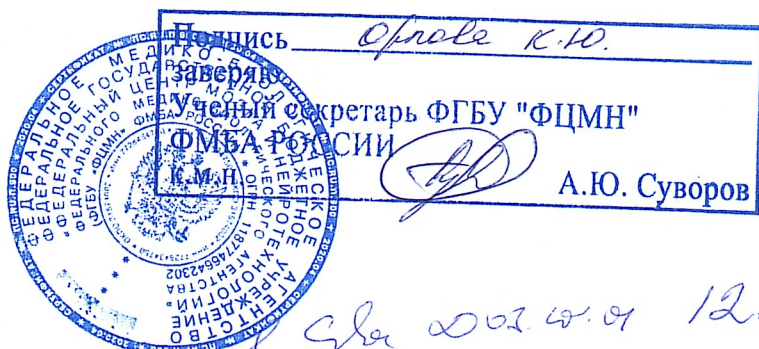 Подпись Орлова К.Ю.
заверяю
Ученый секретарь ФГБУ "ФЦМН"
ФМБА РОССИИ
к.м.н. А.Ю. Суворов
ФЕДЕРАЛЬНОЕ МЕДИКО-БИОЛОГИЧЕСКОЕ АГЕНТСТВО
ФЕДЕРАЛЬНОЕ ГОСУДАРСТВЕННОЕ БЮДЖЕТНОЕ УЧРЕЖДЕНИЕ
«ФЕДЕРАЛЬНЫЙ ЦЕНТР МОЗГА И НЕЙРОТЕХНОЛОГИЙ»
ФЕДЕРАЛЬНОГО МЕДИКО-БИОЛОГИЧЕСКОГО АГЕНТСТВА
(ФГБУ «ФЦМН» ФМБА РОССИИ) ОГРН 1187746642302
12.